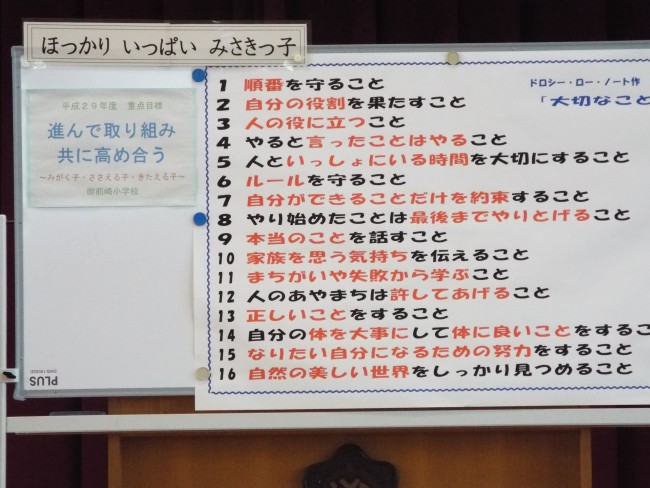 ほっかり いっぱい みさきっ子
平成29年度 重点目標
進んで取り組み
共に高め合う
～みがく子・ささえる子・きたえる子～
御前崎小学校
ドロシー・ロー・ノート作
「大切なこと
1 順番を守ること
2 自分の役割を果たすこと
3 人の役に立つこと
4 やると言ったことはやること
5 人といっしょにいる時間を大切にすること
6 ルールを守ること
7 自分ができることだけを約束すること
8 やり始めたことは最後までやりとげること
9 本当のことを話すこと
10 家族を思う気持ちを伝えること
11 まちがいや失敗から学ぶこと
12 人のあやまちは許してあげること
13 正しいことをすること
14 自分の体を大事にして体に良いことをするこ
15 なりたい自分になるための努力をすること
16 自然の美しい世界をしっかり見つめること
PLUS